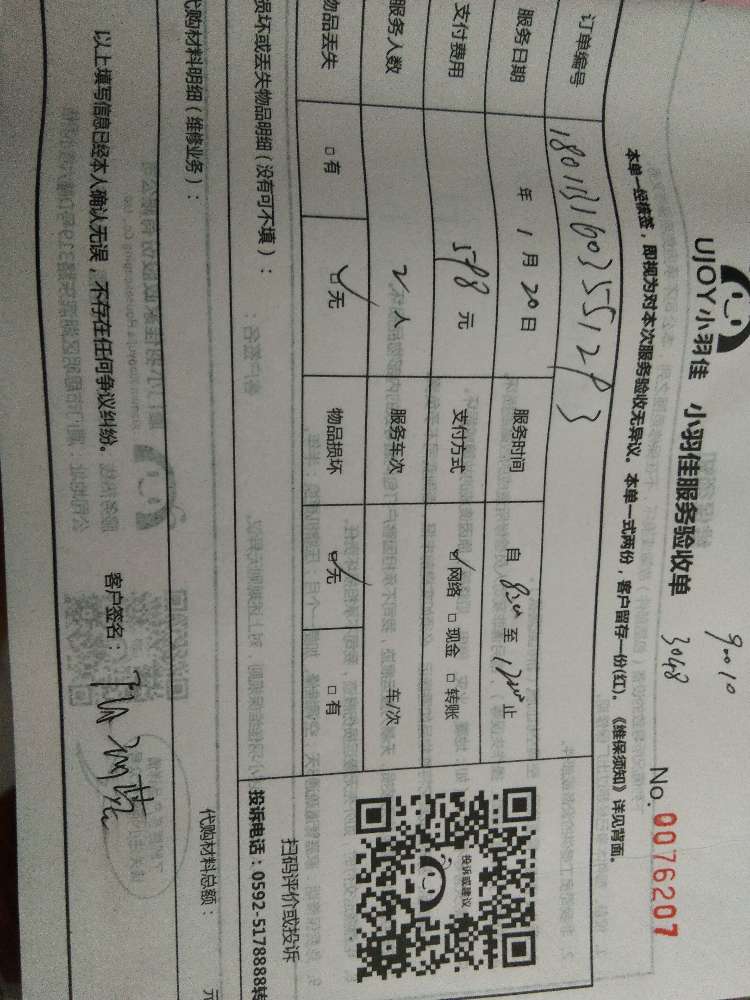 90010
3048
UJOY小羽佳 小羽佳服务验收单
No. 0076207
本单一经核签，即视为对本次服务验收无异议。本单一式两份，客户留存一份(红)。《维保须知》详见背面。
订单编号
服务日期 年 1 月 20 日 服务时间 自 8:30 至 12:00 止
支付费用 598 元 支付方式 ☑网络 □现金 □转账
服务人数 2 人 服务车次 车/次
物品丢失 □有 ☑无 物品损坏 ☑无 □有
投诉或建议
扫码评价或投诉
投诉电话：0592-5178888转
损坏或丢失物品明细（没有可不填）：
代购材料明细（维修业务）：
代购材料总额： 元
以上填写信息已经本人确认无误，不存在任何争议纠纷。 客户签名：